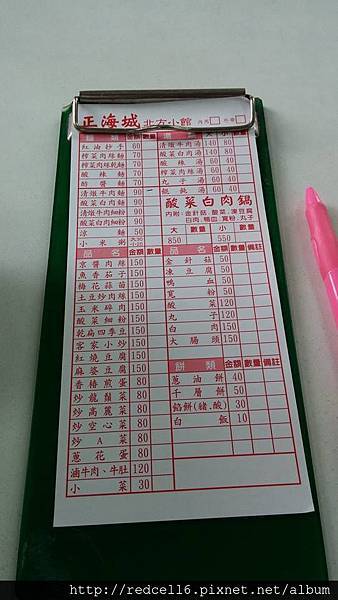 正海城 北方小館 內用□ 外帶□
金額 數量 湯 類 大 小
紅油抄手 60
榨菜肉絲麵 70
榨菜肉絲乾麵 70
酸辣麵 70
酢醬麵 70
清燉牛肉麵 90
酸菜白肉麵 90
清燉牛肉細粉 90
酸菜白肉細粉 90
涼麵 50
小米粥
清燉牛肉湯 140 80
酸菜白肉湯 140 80
酸辣湯 60 40
丸子湯 60 40
餛飩湯 50
酸菜白肉鍋
內附:金針菇、酸菜、凍豆腐
白肉、鴨血、寬粉、丸子
大 數量 小 數量
850 550
品名 金額 數量
京醬肉絲 150
魚香茄子 150
梅花蒜苗 150
土豆炒肉絲 150
玉米碎肉 150
酸菜細粉 150
乾扁四季豆 150
客家小炒 150
紅燒豆腐 150
麻婆豆腐 150
香椿煎蛋 80
炒龍鬚菜 80
炒高麗菜 80
炒空心菜 80
炒A菜 80
蔥花蛋 80
滷牛肉、牛肚 120
小菜 30
品名 金額 數量 備註
金針菇 50
凍豆腐 50
鴨血 50
寬粉 50
酸菜 120
丸子 120
白肉 150
大腸頭 150
餅類 金額 數量 備註
蔥油餅 40
千層餅 50
餡餅(豬.酸) 30
白飯 10
http://redcell16.pixnet.net/album